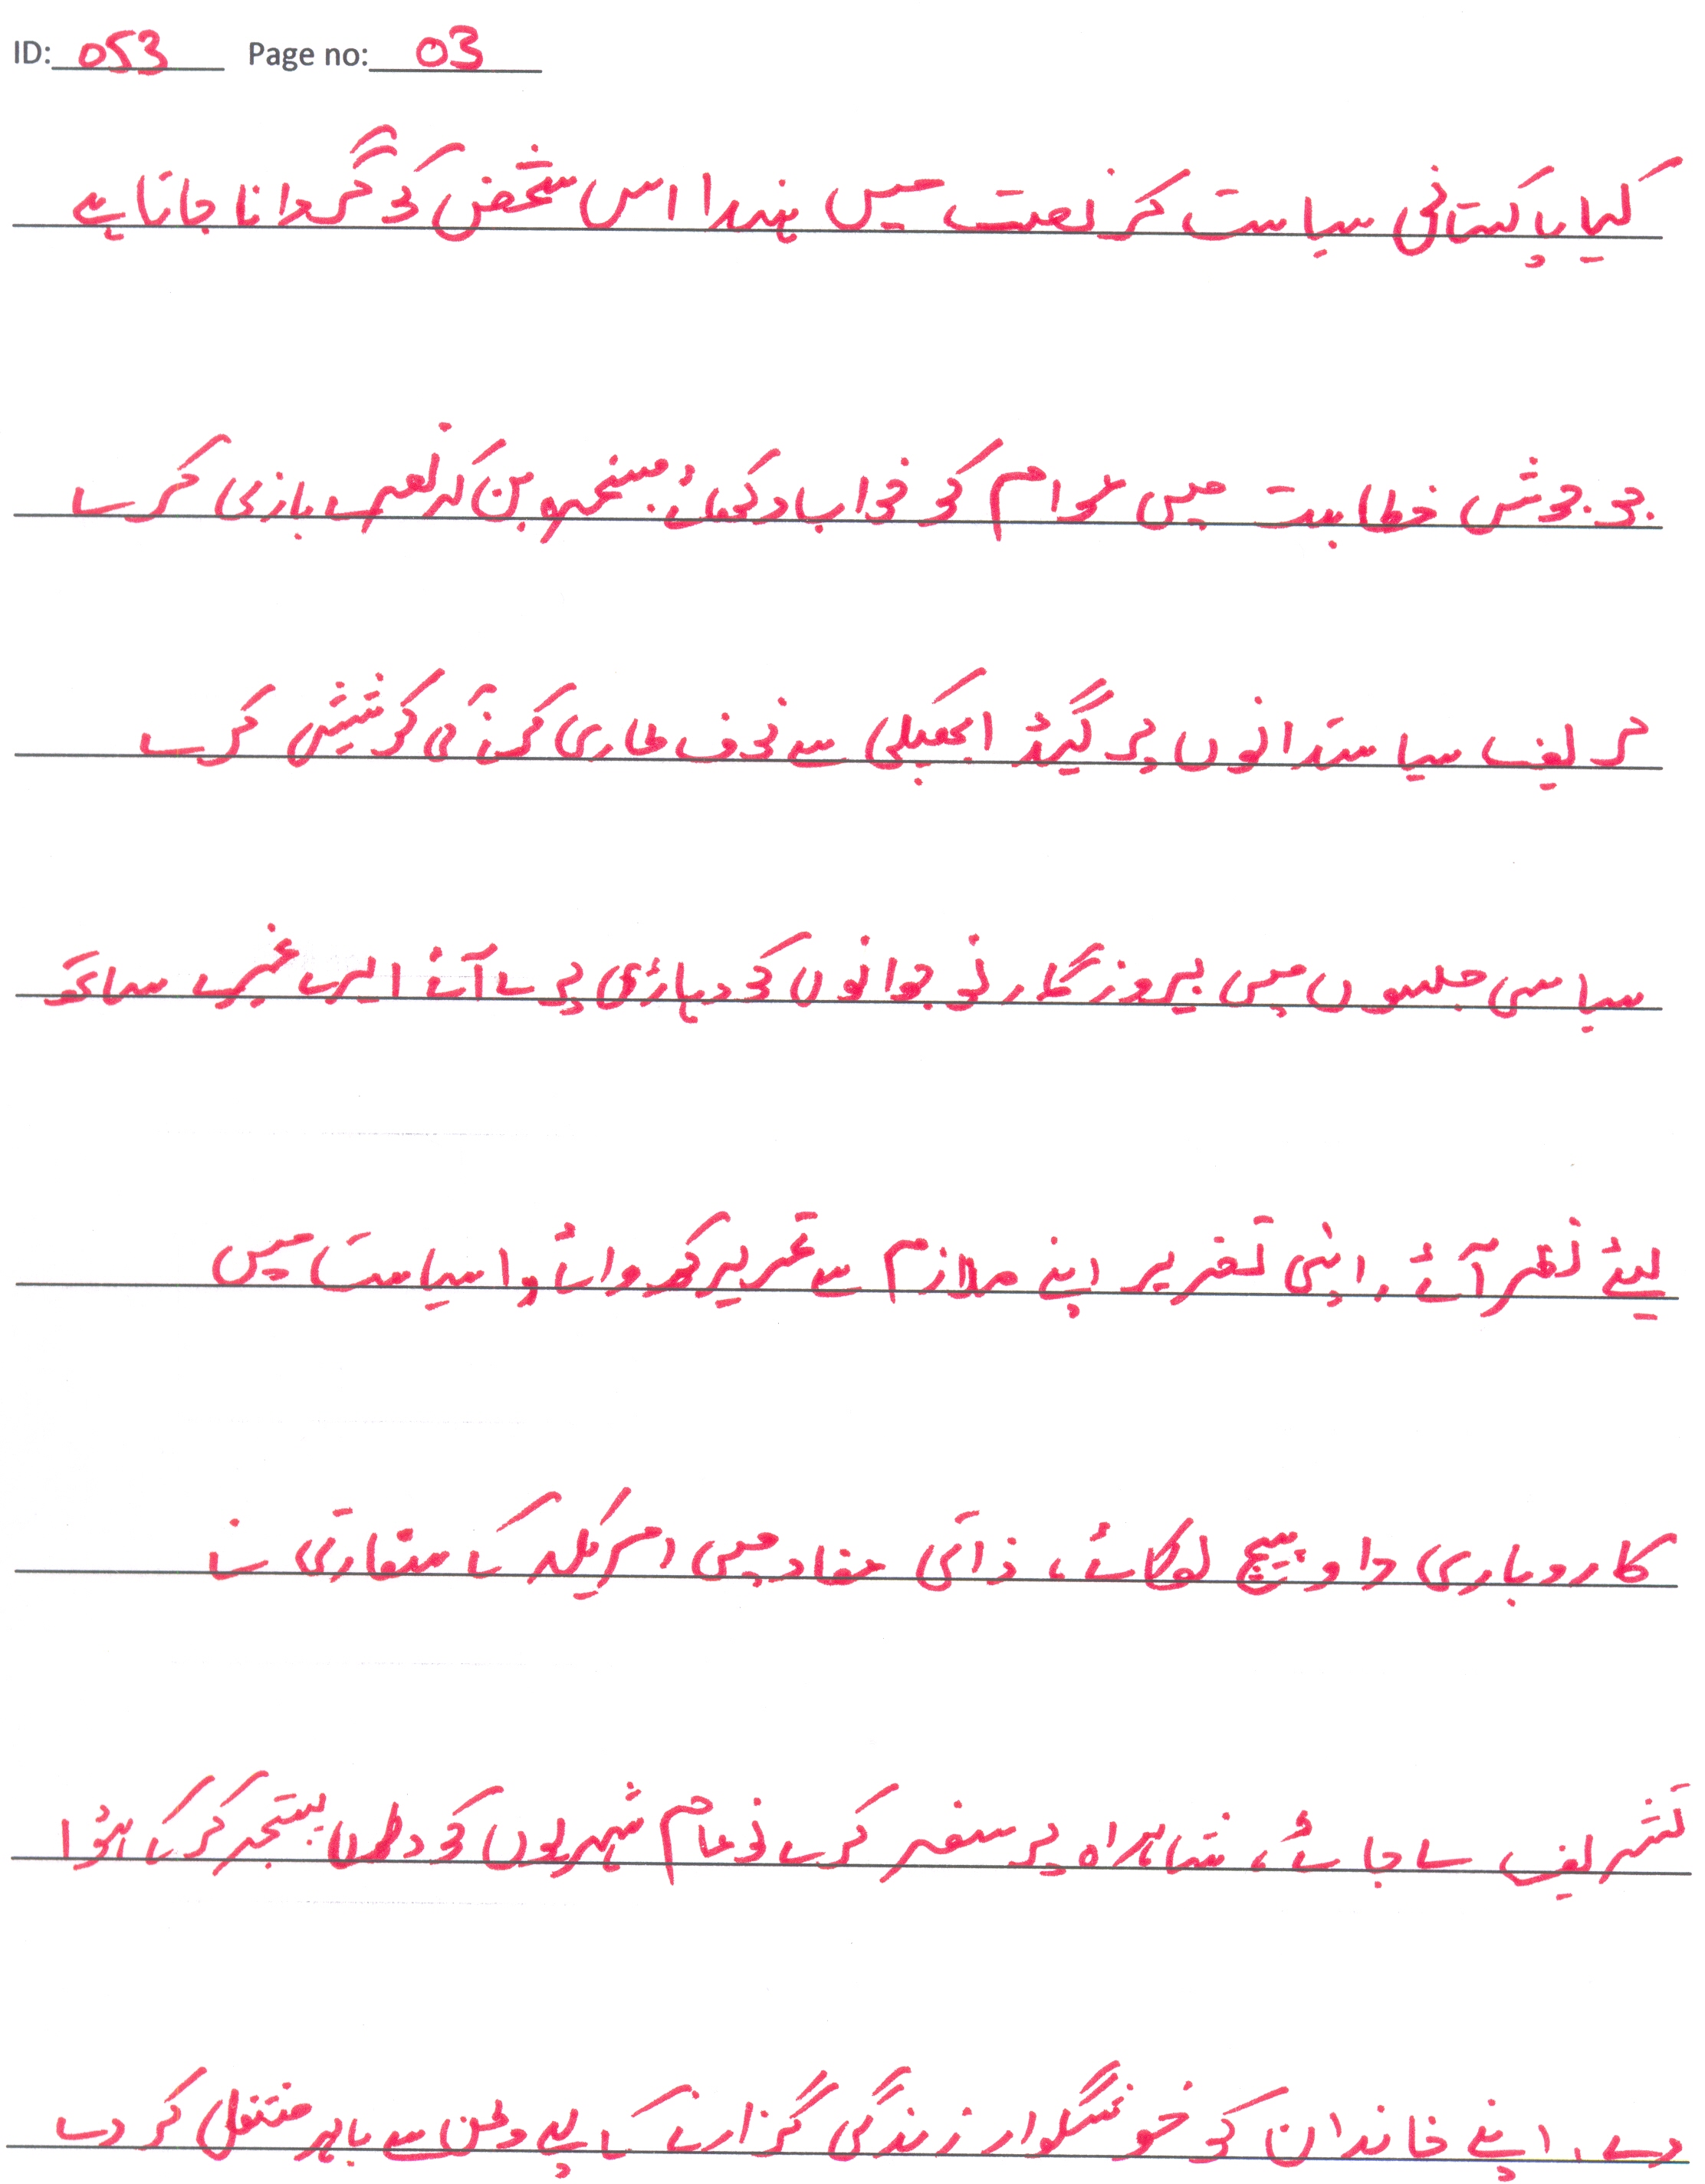 ID: 053 Page no: 03
کیا پاکستانی سیاست کر نعت میں ہندا اس شخص کو گردانا جاتا ہے
جو جوش خطابت میں عوام کو خواب دکھائے مسخرہ بن کر نعرے بازی کرے
حریف سیاستدانوں پر گیڈر بھبکی سے خوف طاری کرنے کی کوشش کرے
سیاسی جلسوں میں بیروزگار نوجوانوں کو دہاڑی پے لے آئے ایرے غیرے ساتھ
لیئے نظر آئے، اپنی تقریر اپنے ملازم سے تحریر کروائے، سیاست میں
کاروباری داو پیچ لڑائے، ذاتی مفاد میں امریکہ کے سفارتی نے
تشریف لے جائے، شاہراہ پر سفر کرے تو عام شہریوں کو دھول بنجر کر کے اڑا
دے، اپنے خاندان کو خوشگوار زندگی گزارنے کے لیے وطن سے باہر منتقل کر دے